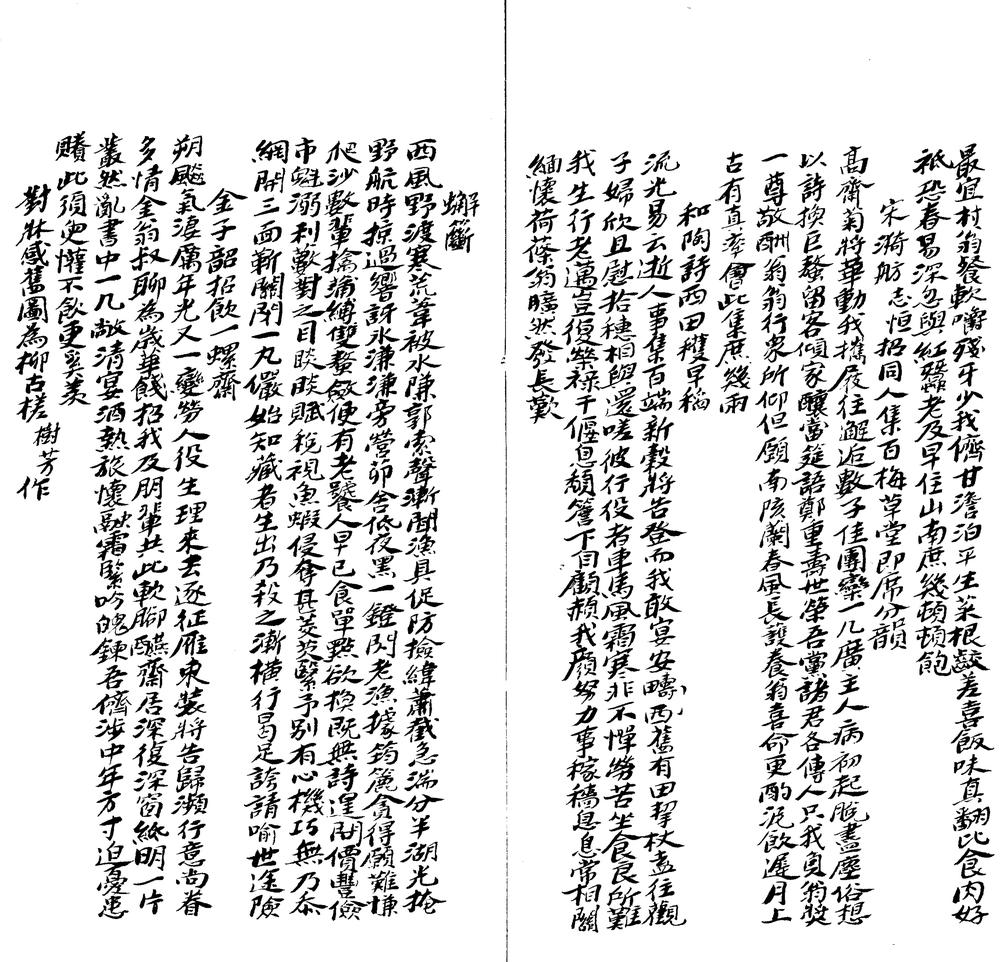 最宜村翁餐軟嚼殘牙少我儕甘澹泊平生菜根齩差喜飯味真翻比食肉好
祗恐春易深忽與紅鹽老及早住山南庶幾頓頓飽
宋漪舫志恒招同人集百梅草堂即席分韻
高齋菊將華動我攜屐往邂逅數子佳團欒一几廣主人病初起脫盡塵俗想
以詩換巨螯留客傾家釀當筵語鄭重壽世榮吾黨諸君各傳人只我負翁獎
一尊敬酬翁翁行衆所仰但願南陔蘭春風長護養翁喜命更酌泥飲遲月上
古有真率會此集庶幾兩
和陶詩西田穫早稻
流光易云逝人事集百端新穀將告登而我敢宴安疇西舊有田挈杖盍往觀
子婦欣且慰拾穗相與還嗟彼行役者車馬風霜寒非不憚勞苦坐食良所難
我生行老邁豈復榮祿干偃息頹簷下自顧赧我顏努力事稼穡息息常相關
緬懷荷蓧翁曠然發長歎
蠏籪
西風野渡寒荒葦被水陳郭索聲漸聞漁具促防檢緯蕭截急湍分半湖光掩
野航時掠過響訝水溓溓旁營茆舍低夜黑一鐙閃老漁據筠篼貪得願難慊
爬沙數輩擒痛縛雙螯斂便有老饕人早已食單點欲換既無詩遑問價豐儉
市蛙溺利藪對之目睒睒賦稅視魚蝦侵奪甚芟芟繄予別有心機巧無乃忝
網開三面新關閉一丸儼始知藏者生出乃殺之漸橫行曷足誇請喻世途險
金子韶招飲一螺齋
朔飈氣淒厲年光又一變勞人役生理來去逐征雁束裝將告歸瀕行意尚眷
多情金翁叔聊為歲華餞招我及朋輩共此軟腳醼齋居深復深窗紙明一片
叢然亂書中一几敞清宴酒熱旅懷融霜緊吟魄鍊吾儕涉中年方寸迫憂患
賺此須臾懽不飲更奚羨
對牀感舊圖為柳古槎樹芳作